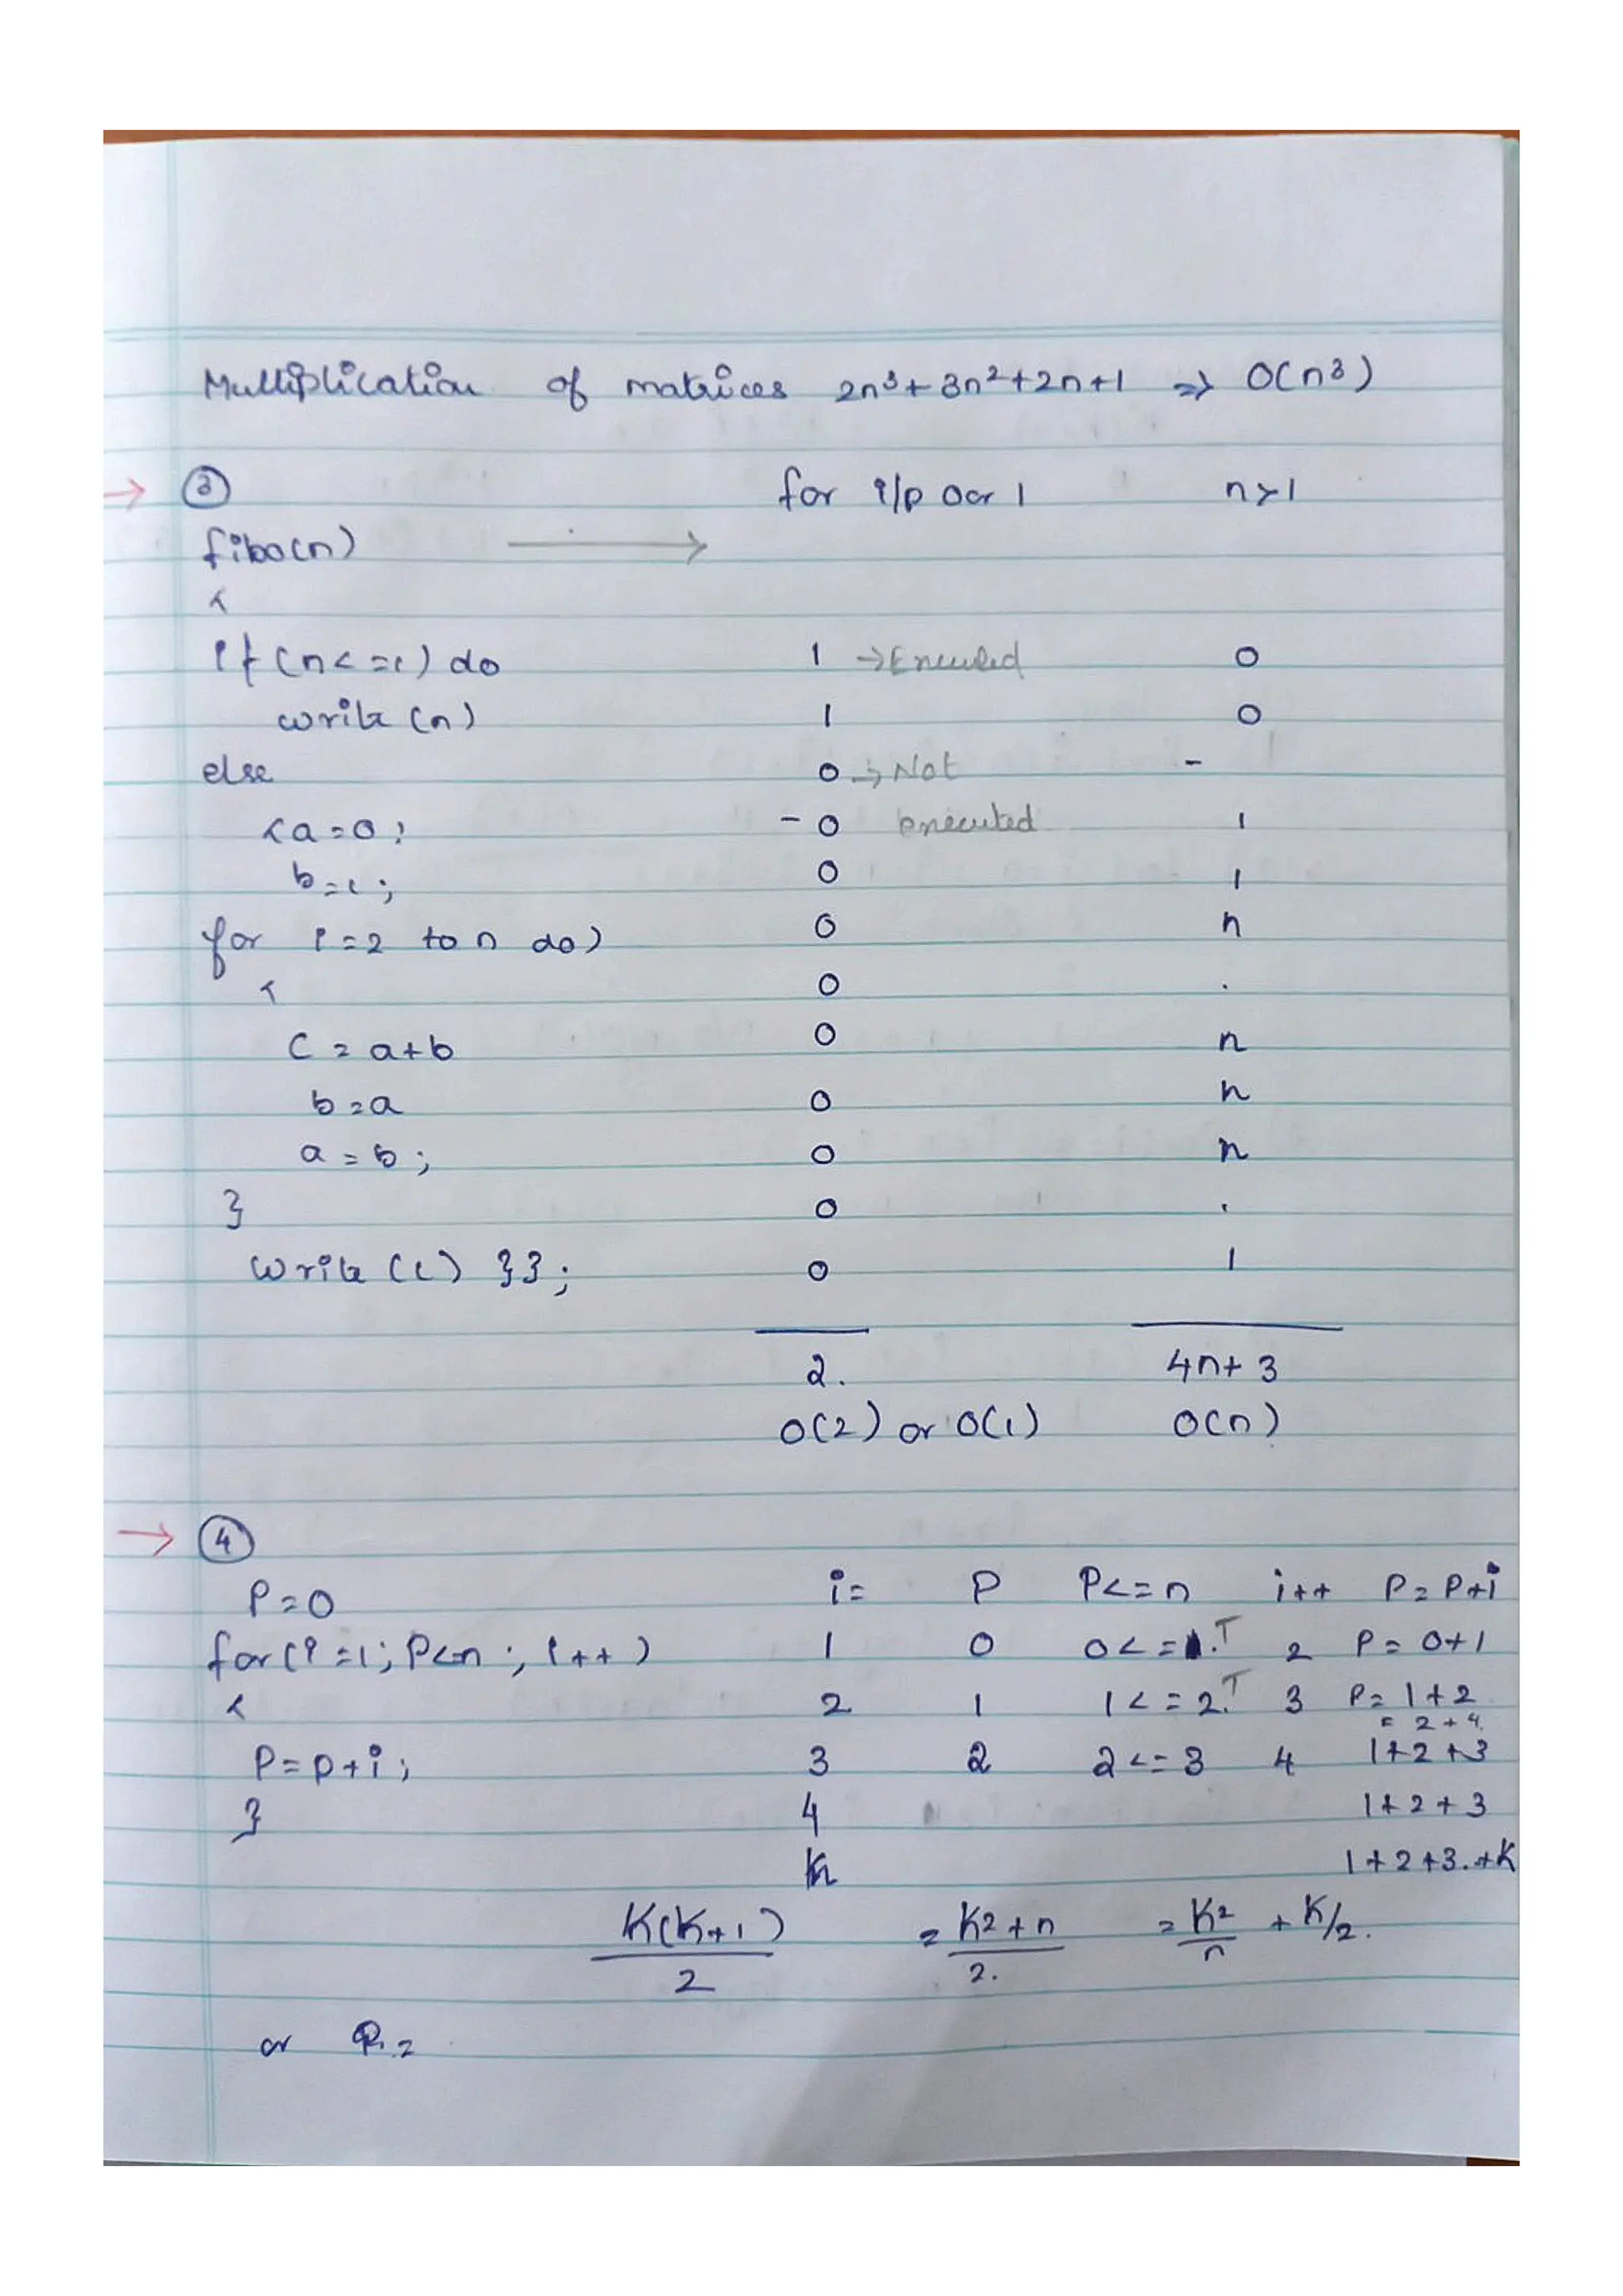 Multiplication of matrices 2n³+3n²+2n+1 => O(n³)
→ ③ for i/p 0 or 1 n>1
fibo(n) →
{
if (n<=1) do 1 → Executed 0
write (n) 1 0
else 0 → Not -
{a=0; - 0 executed 1
b=1; 0 1
for i=2 to n do) 0 n
{ 0 .
C = a+b 0 n
b=a 0 n
a=b; 0 n
} 0 .
write (c) }}; 0 1
2. 4n+3
O(2) or O(1) O(n)
→ ④
P=0 i= P P<=n i++ P=P+i
for(i=1; P<=n; i++) 1 0 0<=1.T 2 P=0+1
{ 2 1 1<=2.T 3 P=1+2
= 2+4.
P=p+i; 3 2 2<=3 4 1+2+3
} 4 1+2+3
K 1+2+3.+K
K(K+1)/2 = K2+n/2. = K2/n + K/2.
or =